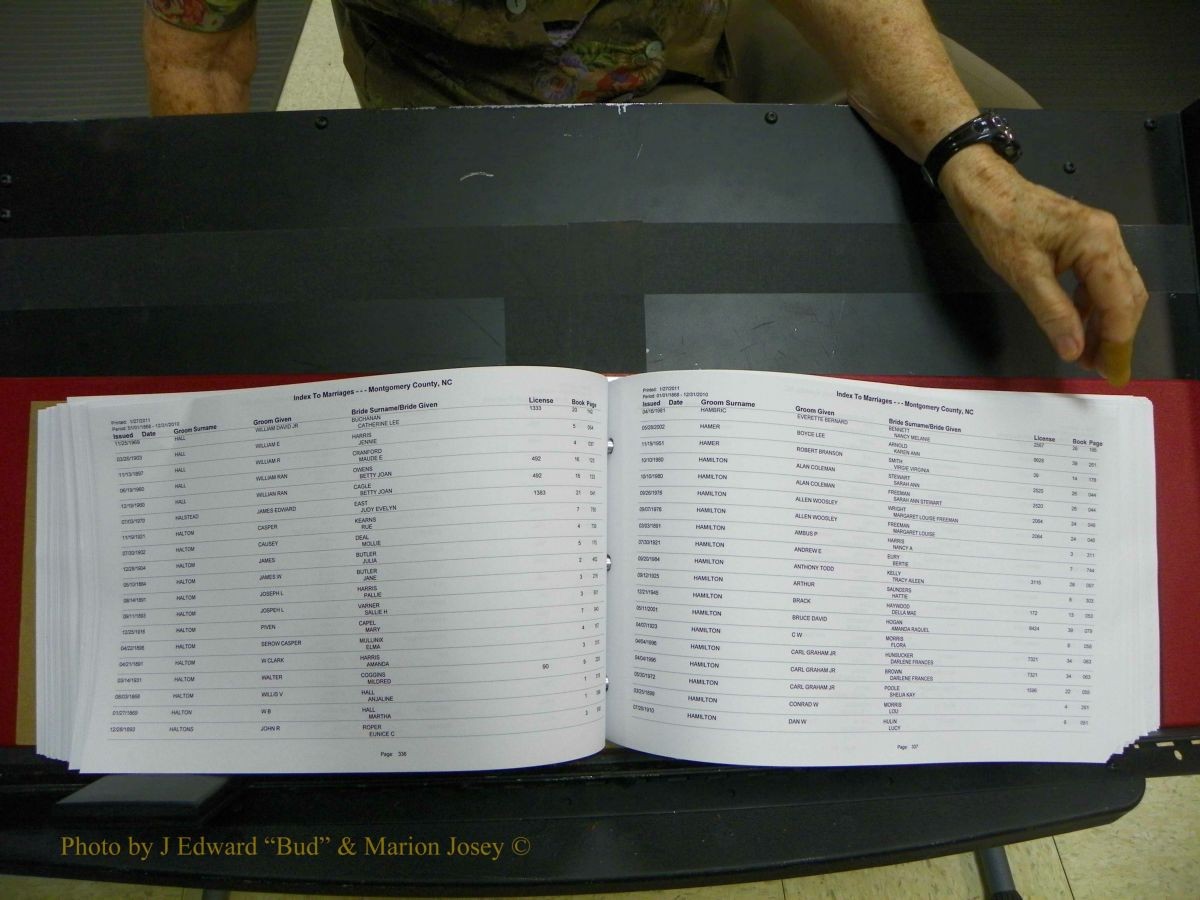 Index To Marriages - - - Montgomery County, NC
Printed: 1/27/2011
Period: 01/01/1868 - 12/31/2010
Issued Date Groom Surname Groom Given Bride Surname/Bride Given License Book Page
11/25/1969 HALL WILLIAM DAVID JR BUCHANAN 1333 20
CATHERINE LEE
HALL WILLIAM E HARRIS 5
JENNIE
HALL WILLIAM R CRANFORD 4
MAUDE E
HALL WILLIAN RAN OWENS 492 16
BETTY JOAN
12/19/1960 HALL WILLIAN RAN CAGLE 492
BETTY JOAN
07/03/1970 HALSTEAD JAMES EDWARD EAST 1383 21
JUDY EVELYN
11/19/1921 HALTOM CASPER KEARNS 7
RUE
07/30/1902 HALTOM CAUSEY DEAL 4
MOLLIE
12/28/1904 HALTOM JAMES BUTLER 5
JULIA
HALTOM JAMES W BUTLER 2
JANE
HALTOM JOSEPH L HARRIS 3
PALLIE
HALTOM JOSPEH L VARNER 3
SALLIE H
HALTOM PIVEN CAPEL 7
MARY
04/22/1896 HALTOM SEROW CASPER MULLINIX 4
ELMA
04/21/1891 HALTOM W CLARK HARRIS 3
AMANDA
03/14/1931 HALTOM WALTER COGGINS 90 9
MILDRED
HALTOM WILLIS V HALL 1
ANJALINE
01/27/1869 HALTON W B HALL 1
MARTHA
12/28/1893 HALTONS JOHN R ROPER 3
EUNICE C
Page: 336
Index To Marriages - - - Montgomery County, NC
Printed: 1/27/2011
Period: 01/01/1868 - 12/31/2010
Issued Date Groom Surname Groom Given Bride Surname/Bride Given License Book Page
HAMBRIC EVERETTE BERNARD BENNETT 2567 26
NANCY MELANIE
05/28/2002 HAMER BOYCE LEE ARNOLD 39
KAREN ANN
11/15/1951 HAMER ROBERT BRANSON SMITH 14
VIRGIE VIRGINIA
10/10/1980 HAMILTON ALAN COLEMAN STEWART 2520 26 044
SARAH ANN
10/10/1980 HAMILTON ALAN COLEMAN FREEMAN 2520 26 044
SARAH ANN STEWART
HAMILTON ALLEN WOOSLEY WRIGHT 2064 24
MARGARET LOUISE FREEMAN
HAMILTON ALLEN WOOSLEY FREEMAN 2064 24
MARGARET LOUISE
03/03/1891 HAMILTON AMBUS P HARRIS 3 211
NANCY A
07/30/1921 HAMILTON ANDREW E EURY 7 744
BERTIE
09/20/1984 HAMILTON ANTHONY TODD KELLY 3115
TRACY AILEEN
09/12/1925 HAMILTON ARTHUR SAUNDERS 8 303
HATTIE
12/21/1945 HAMILTON BRACK HAYWOOD 172 13
DELLA MAE
05/11/2001 HAMILTON BRUCE DAVID HOGAN 38 079
AMANDA RAQUEL
04/07/1923 HAMILTON C W MORRIS 8
FLORA
04/04/1996 HAMILTON CARL GRAHAM JR HUNSUCKER 7321 34 063
DARLENE FRANCES
04/04/1996 HAMILTON CARL GRAHAM JR BROWN 7321 34 063
DARLENE FRANCES
05/30/1972 HAMILTON CARL GRAHAM JR POOLE 1596 22
SHELIA KAY
03/25/1899 HAMILTON CONRAD W MORRIS 4
LOU
07/20/1910 HAMILTON DAN W HULIN 6
LUCY
Page: 337
Photo by J Edward “Bud” & Marion Josey ©